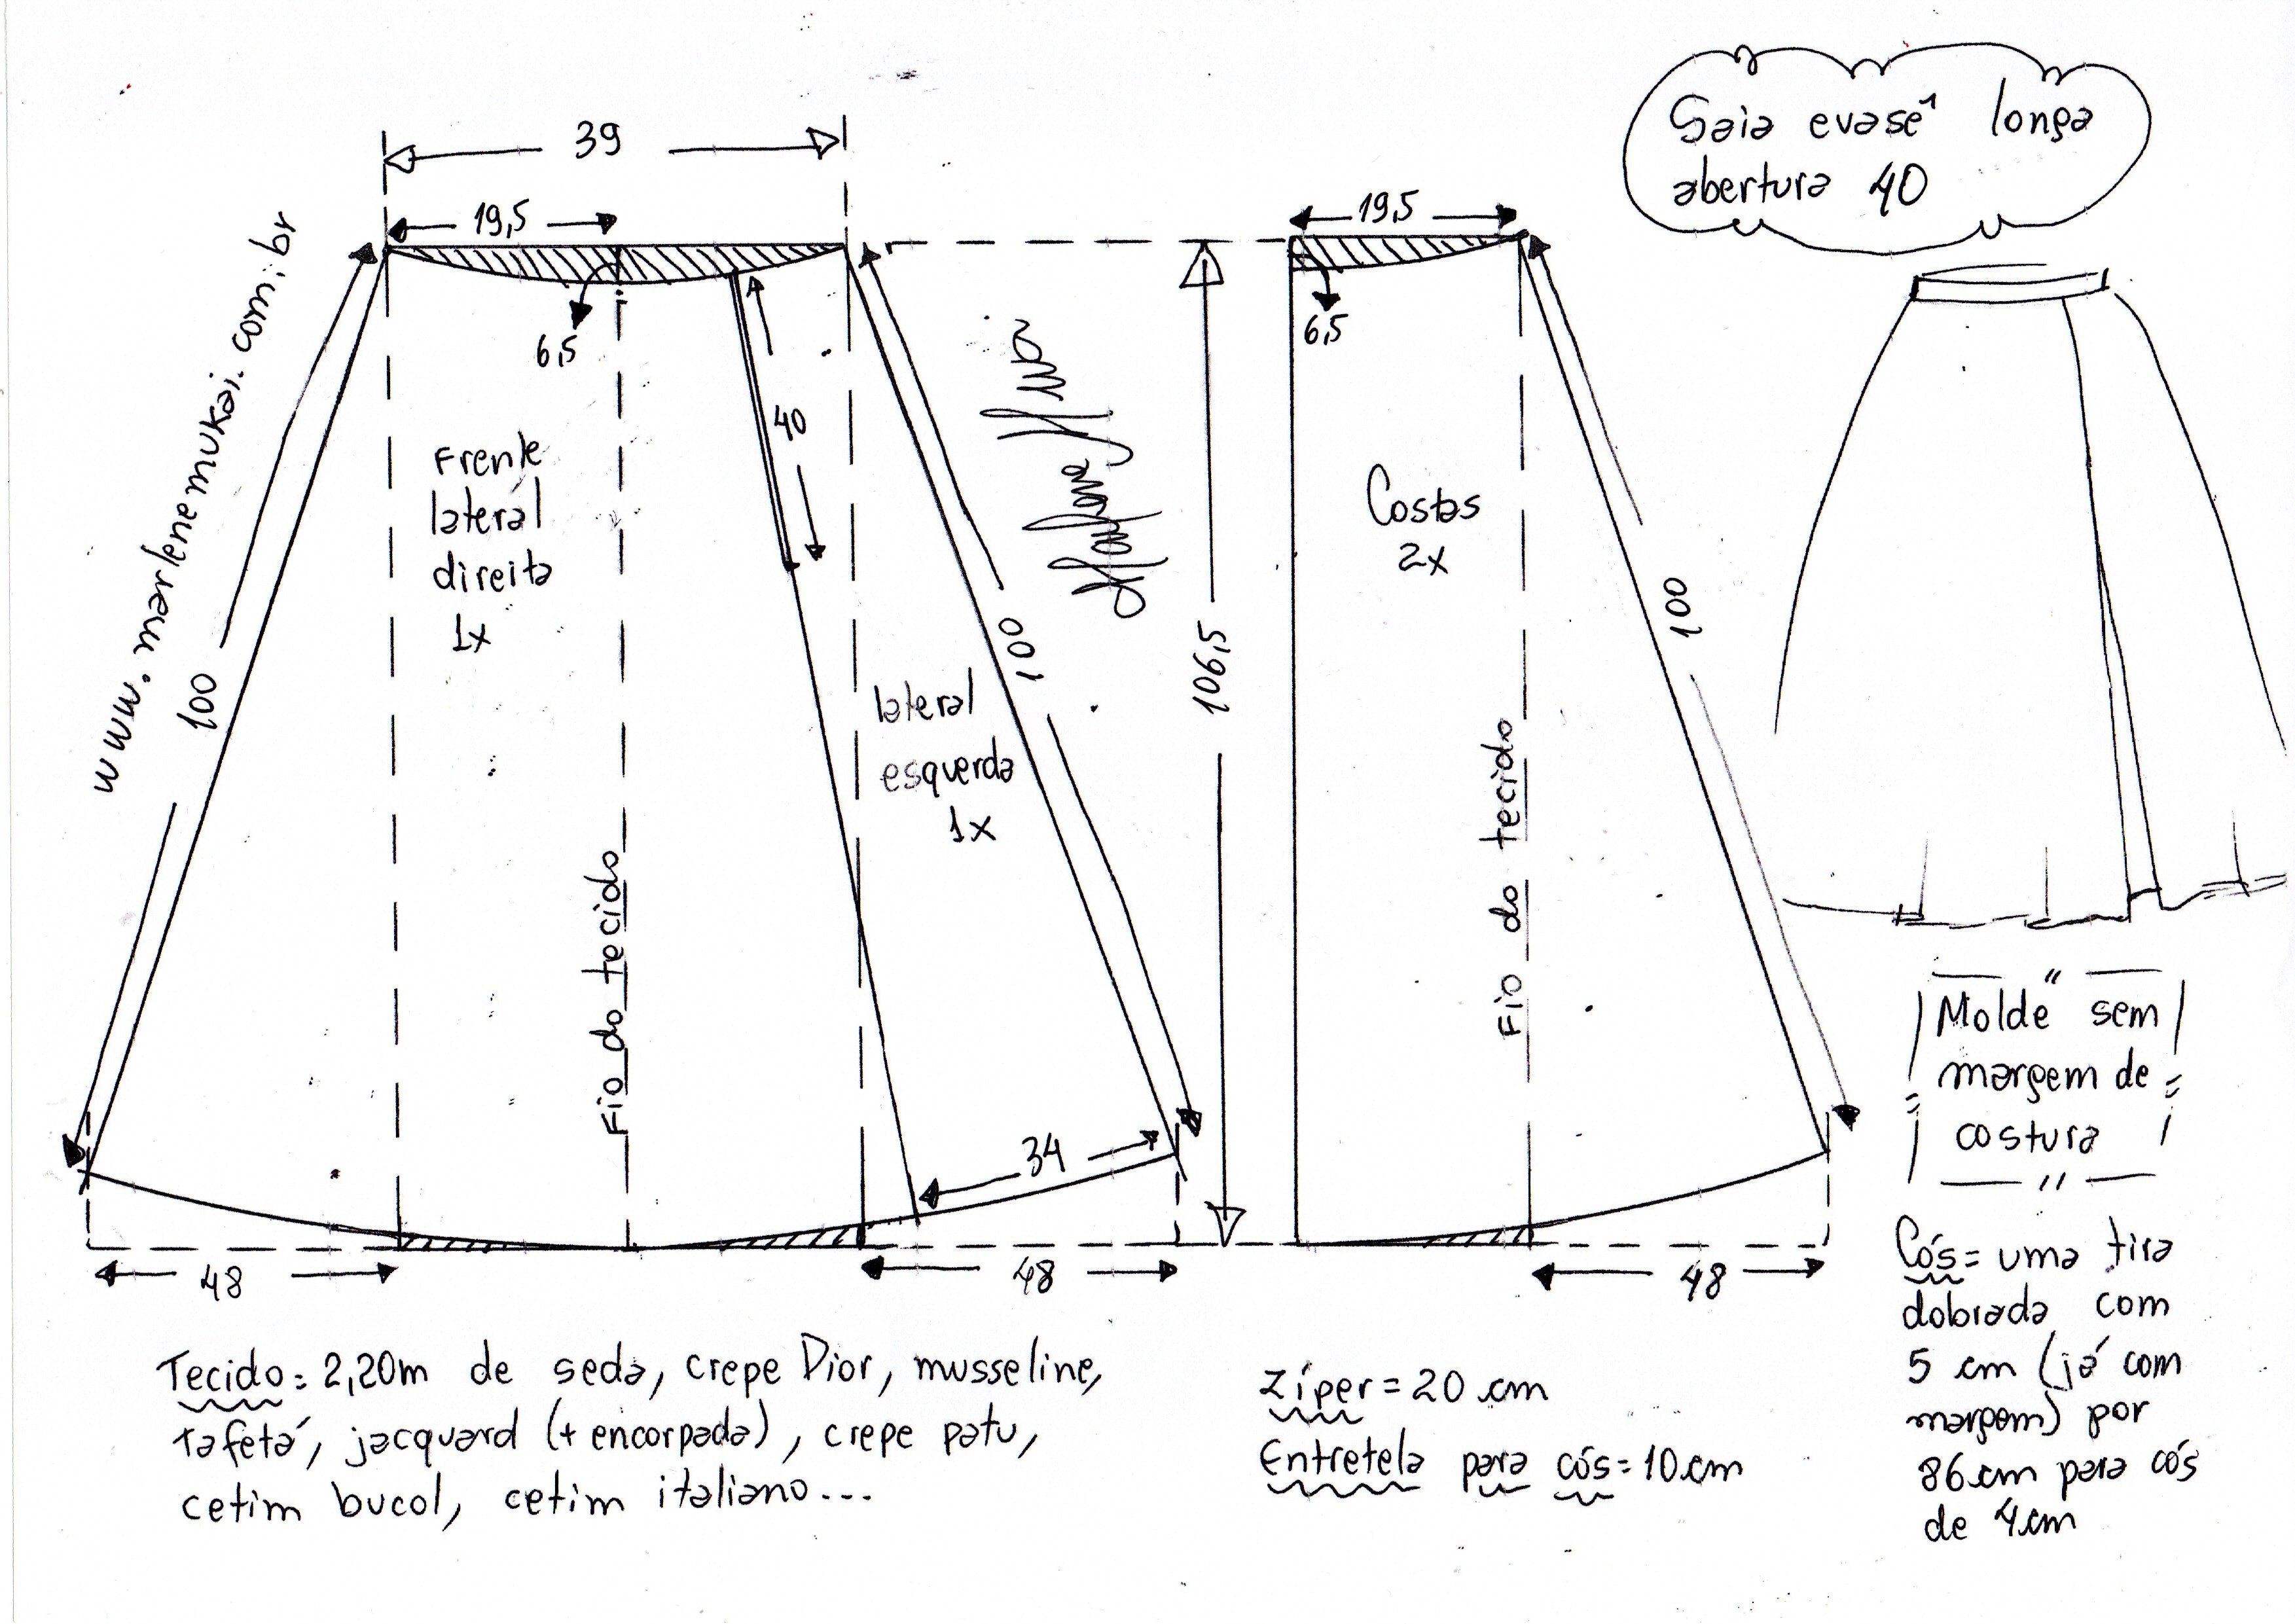 Saia evasê longa
abertura 40
39
19,5
6,5
www.marlenemukai.com.br
100
Frente
lateral
direita
1x
40
Fio do tecido
lateral
esquerda
1x
100
34
48
48
106,5
19,5
6,5
Costas
2x
Fio do tecido
100
48
"Molde sem
margem de
costura"
Cós = uma tira
dobrada com
5 cm (já com
margem) por
86 cm para cós
de 4 cm
Tecido: 2,20m de seda, crepe Dior, musseline,
tafetá, jacquard (+ encorpada), crepe patu,
cetim bucol, cetim italiano...
Zíper = 20 cm
Entretela para cós = 10 cm